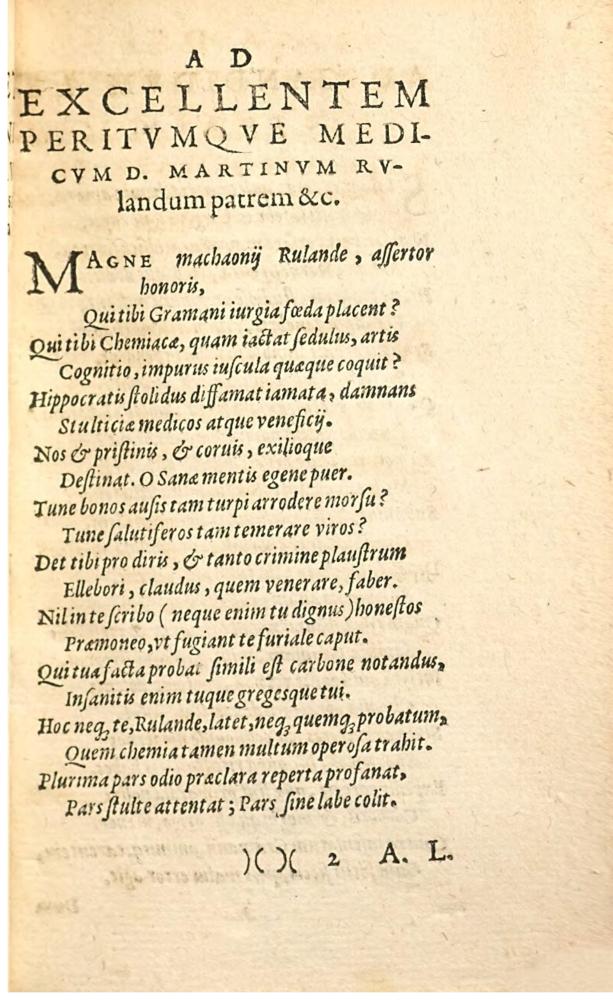 AD
EXCELLENTEM
PERITVMQVE MEDI-
CVM D. MARTINVM RV-
landum patrem &c.
MAGNE machaonij Rulande, aſſertor
honoris,
Qui tibi Gramani iurgia fœda placent?
Qui tibi Chemiacæ, quam iactat ſedulus, artis
Cognitio, impurus iuſcula quæque coquit?
Hippocratis ſtolidus diffamat iamata, damnans
Stulticiæ medicos atque veneficij.
Nos & priſtinis, & coruis, exilioque
Deſtinat. O Sanæ mentis egene puer.
Tune bonos auſis tam turpi arrodere morſu?
Tune ſalutiferos tam temerare viros?
Det tibi pro diris, & tanto crimine plauſtrum
Ellebori, claudus, quem venerare, faber.
Nil in te ſcribo (neque enim tu dignus) honeſtos
Præmoneo, vt fugiant te furiale caput.
Qui tua facta probat ſimili eſt carbone notandus,
Inſanitis enim tuque gregesque tui.
Hoc neqꝫ te, Rulande, latet, neqꝫ quemqꝫ probatum,
Quem chemia tamen multum operoſa trahit.
Plurima pars odio præclara reperta profanat,
Pars ſtulte attentat; Pars ſine labe colit.
)( )( 2 A. L.